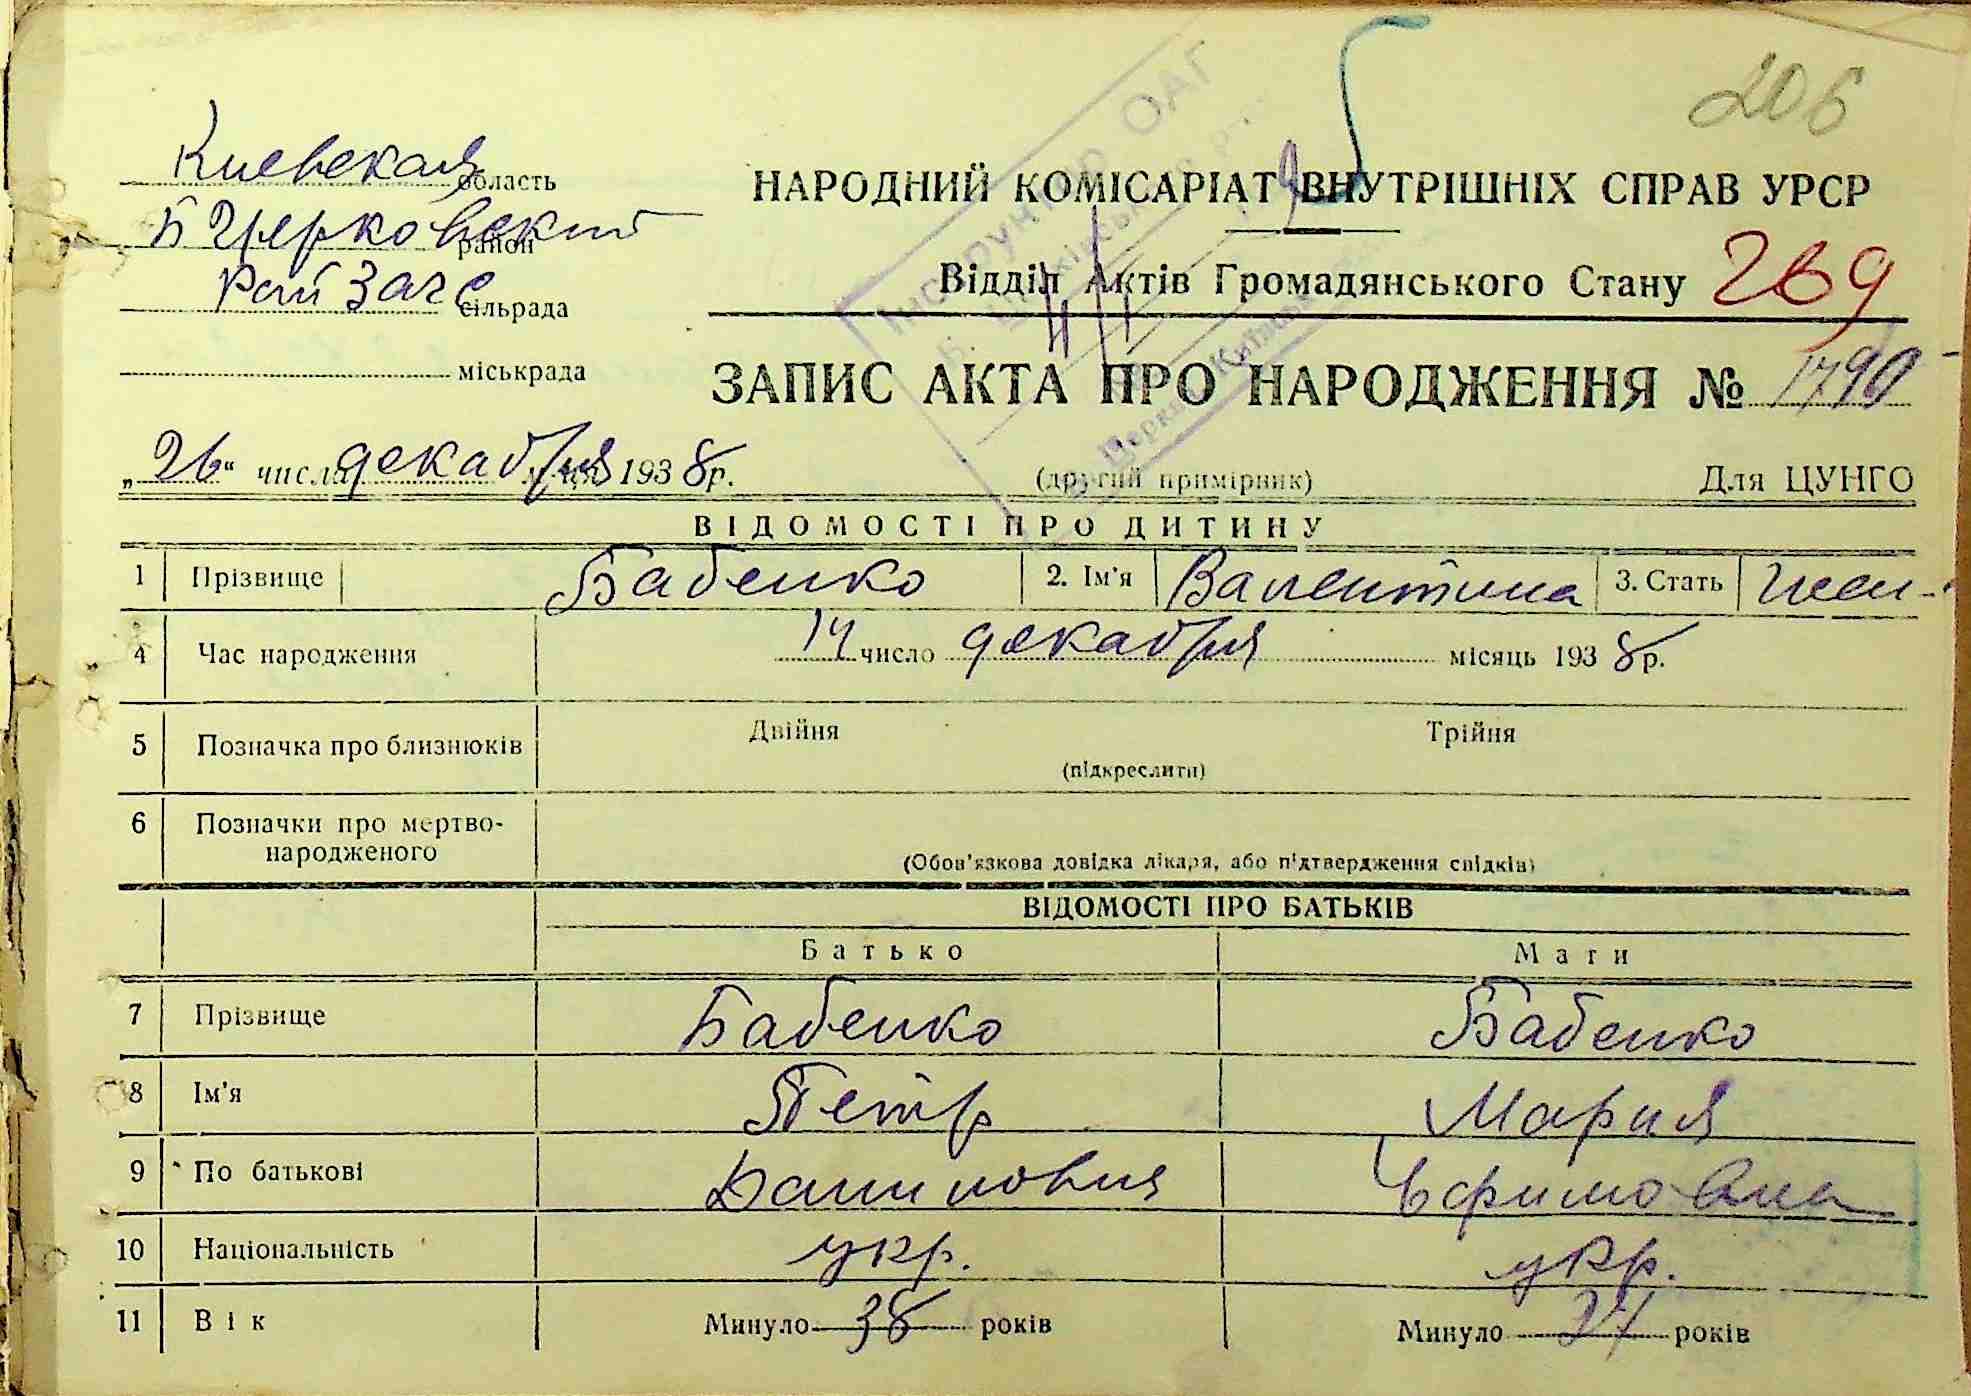 206
Киевская область
Б Церковский район
Рай Загс сільрада
міськрада
НАРОДНИЙ КОМІСАРІАТ ВНУТРІШНІХ СПРАВ УРСР
Відділ Актів Громадянського Стану 269
ЗАПИС АКТА ПРО НАРОДЖЕННЯ № 1790
„26“ числа декабря м-ця 1938 р.
(другий примірник)
Для ЦУНГО
Інструктор ОАГ
ВІДОМОСТІ ПРО ДИТИНУ
1 Прізвище Бабенко 2. Ім'я Валентина 3. Стать жен-
4 Час народження 14 число декабря місяць 1938 р.
5 Позначка про близнюків Двійня Трійня
(підкреслити)
6 Позначки про мертво-
народженого
(Обов'язкова довідка лікаря, або підтвердження свідків)
ВІДОМОСТІ ПРО БАТЬКІВ
Батько Мати
7 Прізвище Бабенко Бабенко
8 Ім'я Петр Мария
9 По батькові Данилович Ефимовна
10 Національність укр. укр.
11 Вік Минуло 38 років Минуло років